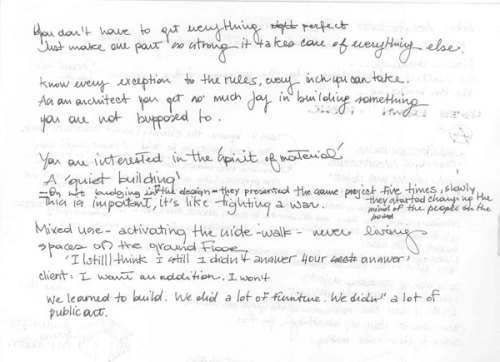 You don't have to get everything right perfect
Just make one part so strong it takes care of everything else.
Know every exception to the rules, every inch you can take.
As an architect you get so much joy in building something
you are not supposed to.
You are interested in the 'spirit of material'
A 'quiet building'
- On not budging in the design - they presented the same project five times, slowly
they started changing the
mind of the people on the
board
This is important, it's like fighting a war.
Mixed use - activating the side-walk - never living
spaces on the ground floor
'I (still) think I still I didn't answer your answer'
client: I want an addition. I won't
We learned to build. We did a lot of furniture. We didn" a lot of
public art.